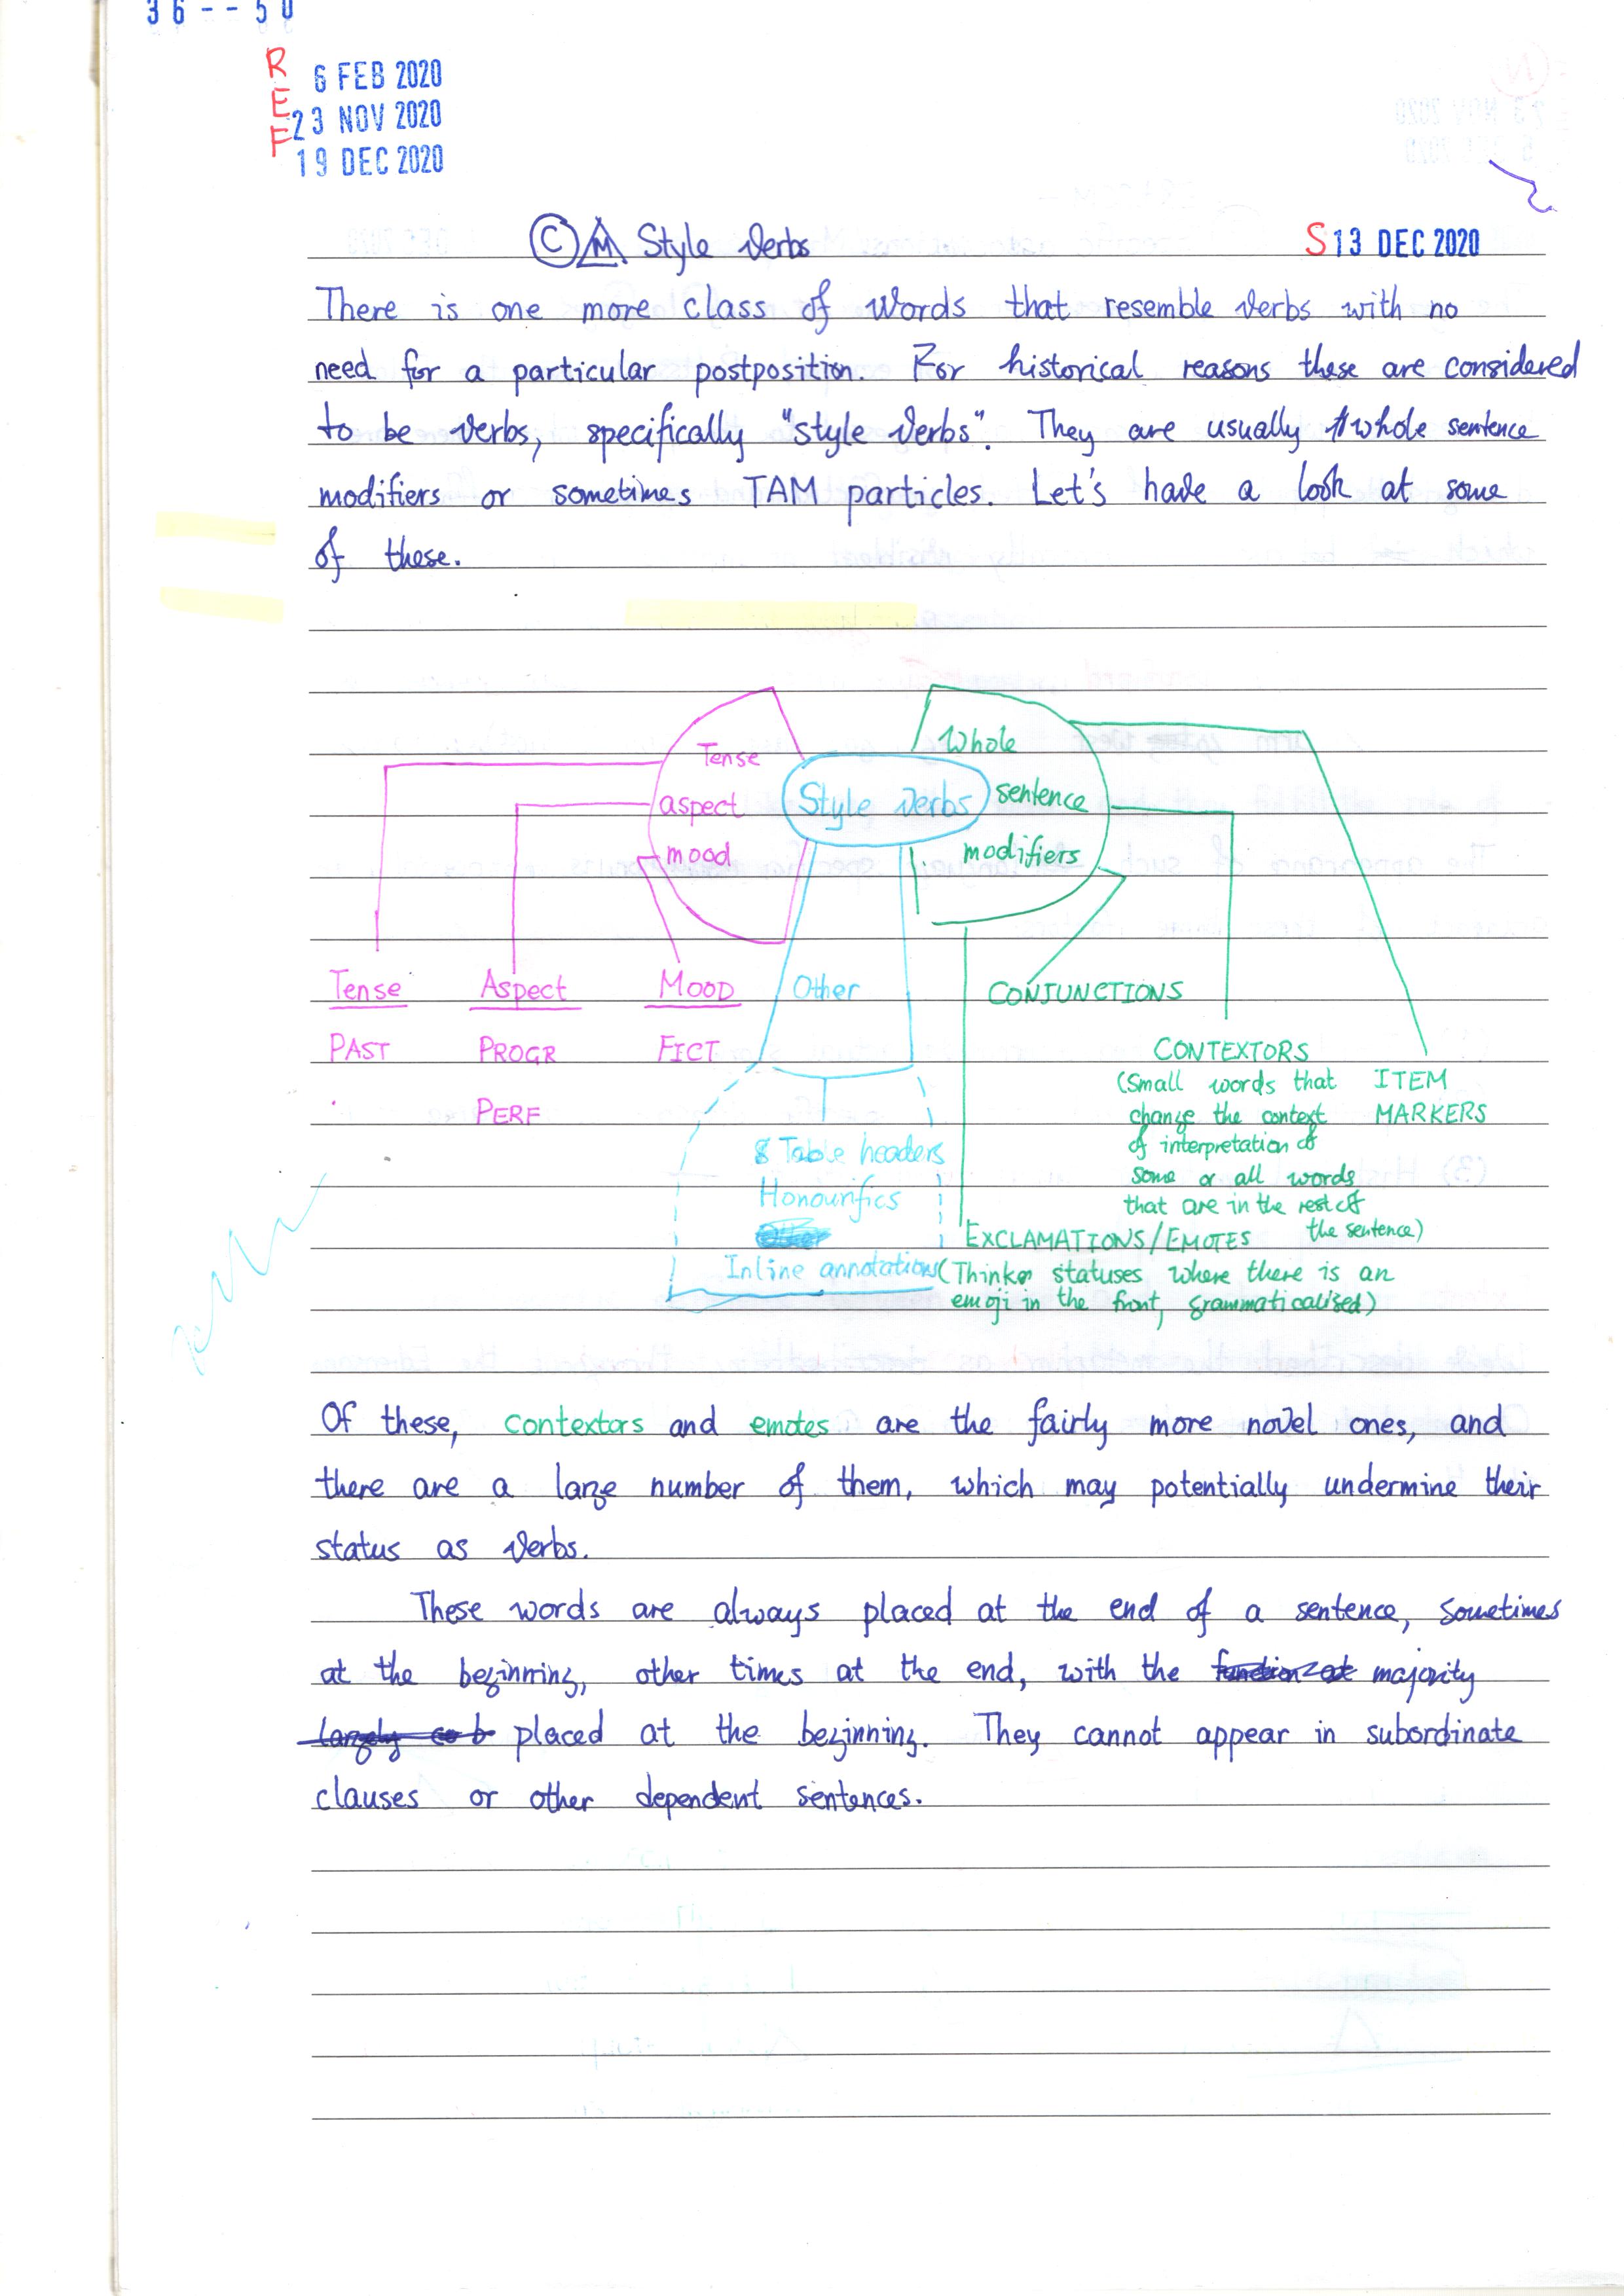 36--50
REF
6 FEB 2020
23 NOV 2020
19 DEC 2020
Ⓒ M Style verbs
S 13 DEC 2020
There is one more class of words that resemble verbs with no
need for a particular postposition. For historical reasons these are considered
to be verbs, specifically "style verbs". They are usually whole sentence
modifiers or sometimes TAM particles. Let's have a look at some
of these.
Tense
aspect
mood
Style verbs
Whole
sentence
modifiers
Tense
PAST
Aspect
PROGR
PERF
MOOD
FICT
Other
Table headers
Honourifics
Inline annotations
CONJUNCTIONS
CONTEXTORS
(Small words that
change the context
of interpretation of
some or all words
that are in the rest of
the sentence)
ITEM
MARKERS
EXCLAMATIONS/EMOTES
(Think statuses where there is an
emoji in the front, grammaticalised)
Of these, contextors and emotes are the fairly more novel ones, and
there are a large number of them, which may potentially undermine their
status as verbs.
These words are always placed at the end of a sentence, sometimes
at the beginning, other times at the end, with the majority
placed at the beginning. They cannot appear in subordinate
clauses or other dependent sentences.